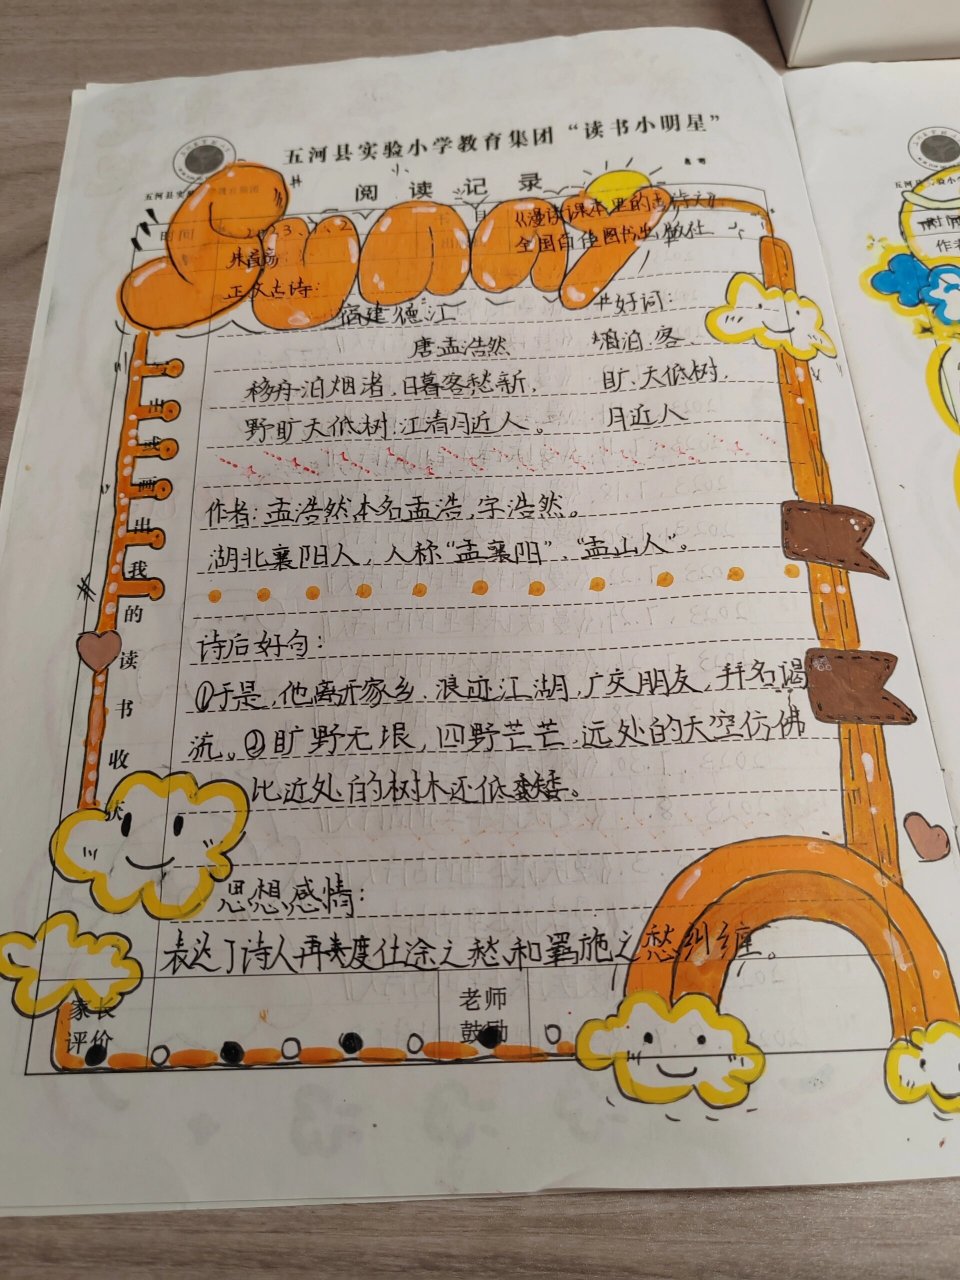 五河县实验小学教育集团“读书小明星”
阅读记录
时间
2023、1、2
《漫读课本里的古诗文》
全国百佳图书出版社
正文古诗：
宿建德江
好词：
唐·孟浩然
泊、客
移舟泊烟渚，日暮客愁新。
旷、天低树，
野旷天低树，江清月近人。
月近人
作者：孟浩然本名孟浩，字浩然。
湖北襄阳人，人称“孟襄阳”、“孟山人”。
诗后好句：
①于是，他离开家乡，浪迹江湖，广交朋友，拜名谒
流。②旷野无垠，四野茫茫，远处的天空仿佛
比近处的树木还低矮。
思想感情：
表达了诗人再度仕途之愁和羁旅之愁纠缠。
我的读书收获
家长评价
老师鼓励
五河县
作者